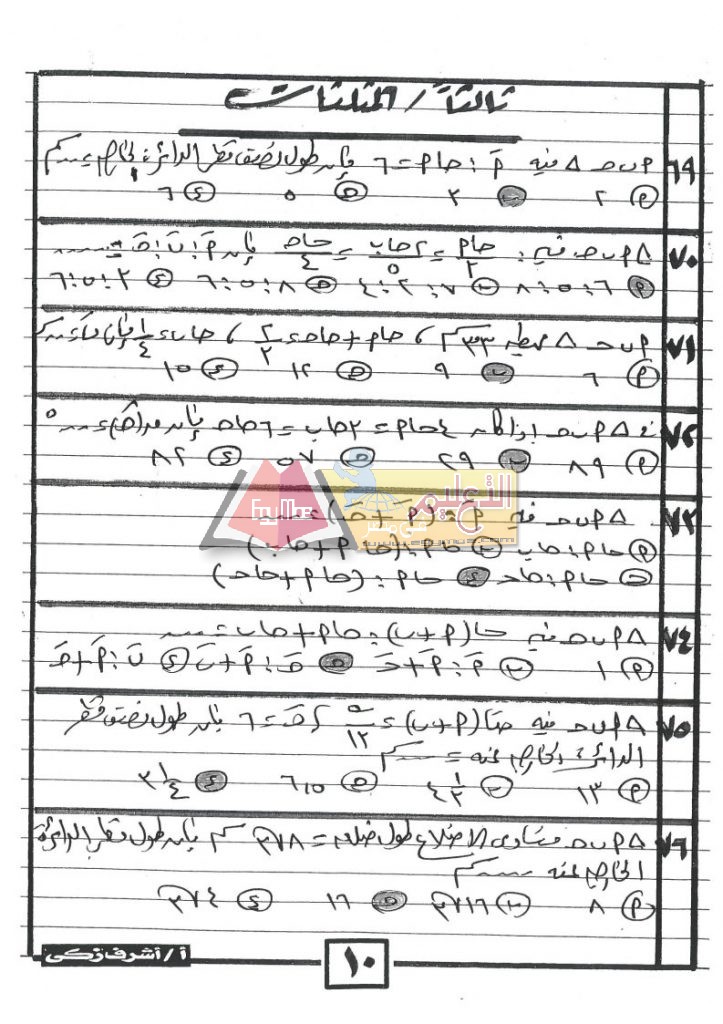 ثالثاً / المثلثات
٦٩ م ب حـ △ فيه مَ : حا م = ٦ فإن طول نصف قطر الدائرة الخارجة = ..... سم
م ٢ ب ٣ حـ ٥ ء ٦
٧٠ △ م ب حـ فيه: حا م / ٣ = ٢ حا ب / ٥ = حا حـ / ٤ فإن مَ : بَ : حـَ = .....
م ٦ : ٥ : ٨ ب ٧ : ٢ : ٤ حـ ٨ : ٥ : ٦ ء ٢ : ٥ : ٦
٧١ م ب حـ △ محيطه ٣٣ سم ، حا م + حا حـ = ٢/٣ ، حا ب = ١/٤ فإن
م ٦ ب ٩ حـ ١٢ ء ١٥
٧٢ △ م ب حـ إذا كان ٤ حا م = ٣ حا ب = ٦ حا حـ فإن ق(حـ) = ..... °
م ٨٩ ب ٢٩ حـ ٥٧ ء ٨٢
٧٣ △ م ب حـ فيه مَ : (مَ + حـَ) =
م حا م : حا ب ب حا م : (حا م + حا ب)
حـ حا م : حا حـ ء حا م : (حا م + حا حـ)
٧٤ △ م ب حـ فيه حا (م + ب) : حا م + حا ب = .....
م ١ ب مَ : مَ + حـَ حـ حـَ : مَ + بَ ء بَ : مَ + حـَ
٧٥ △ م ب حـ فيه حتا (م + ب) = ٥/١٣ ، حـَ = ٦ فإن طول نصف قطر
الدائرة الخارجة عنه = ..... سم
م ١٣ ب حـ ٦٫٥ ء ٣ ١/٤
٧٦ △ م ب حـ متساوى الأضلاع طول ضلعه = ٨√٣ سم فإن طول قطر الدائرة
الخارجة عنه ..... سم
م ٨ ب ١٦√٣ حـ ١٦ ء ٤√٣
التعليمى
فى مصر
EgyMoe
www.egymoe.com
١٠
أ / أشرف زكى